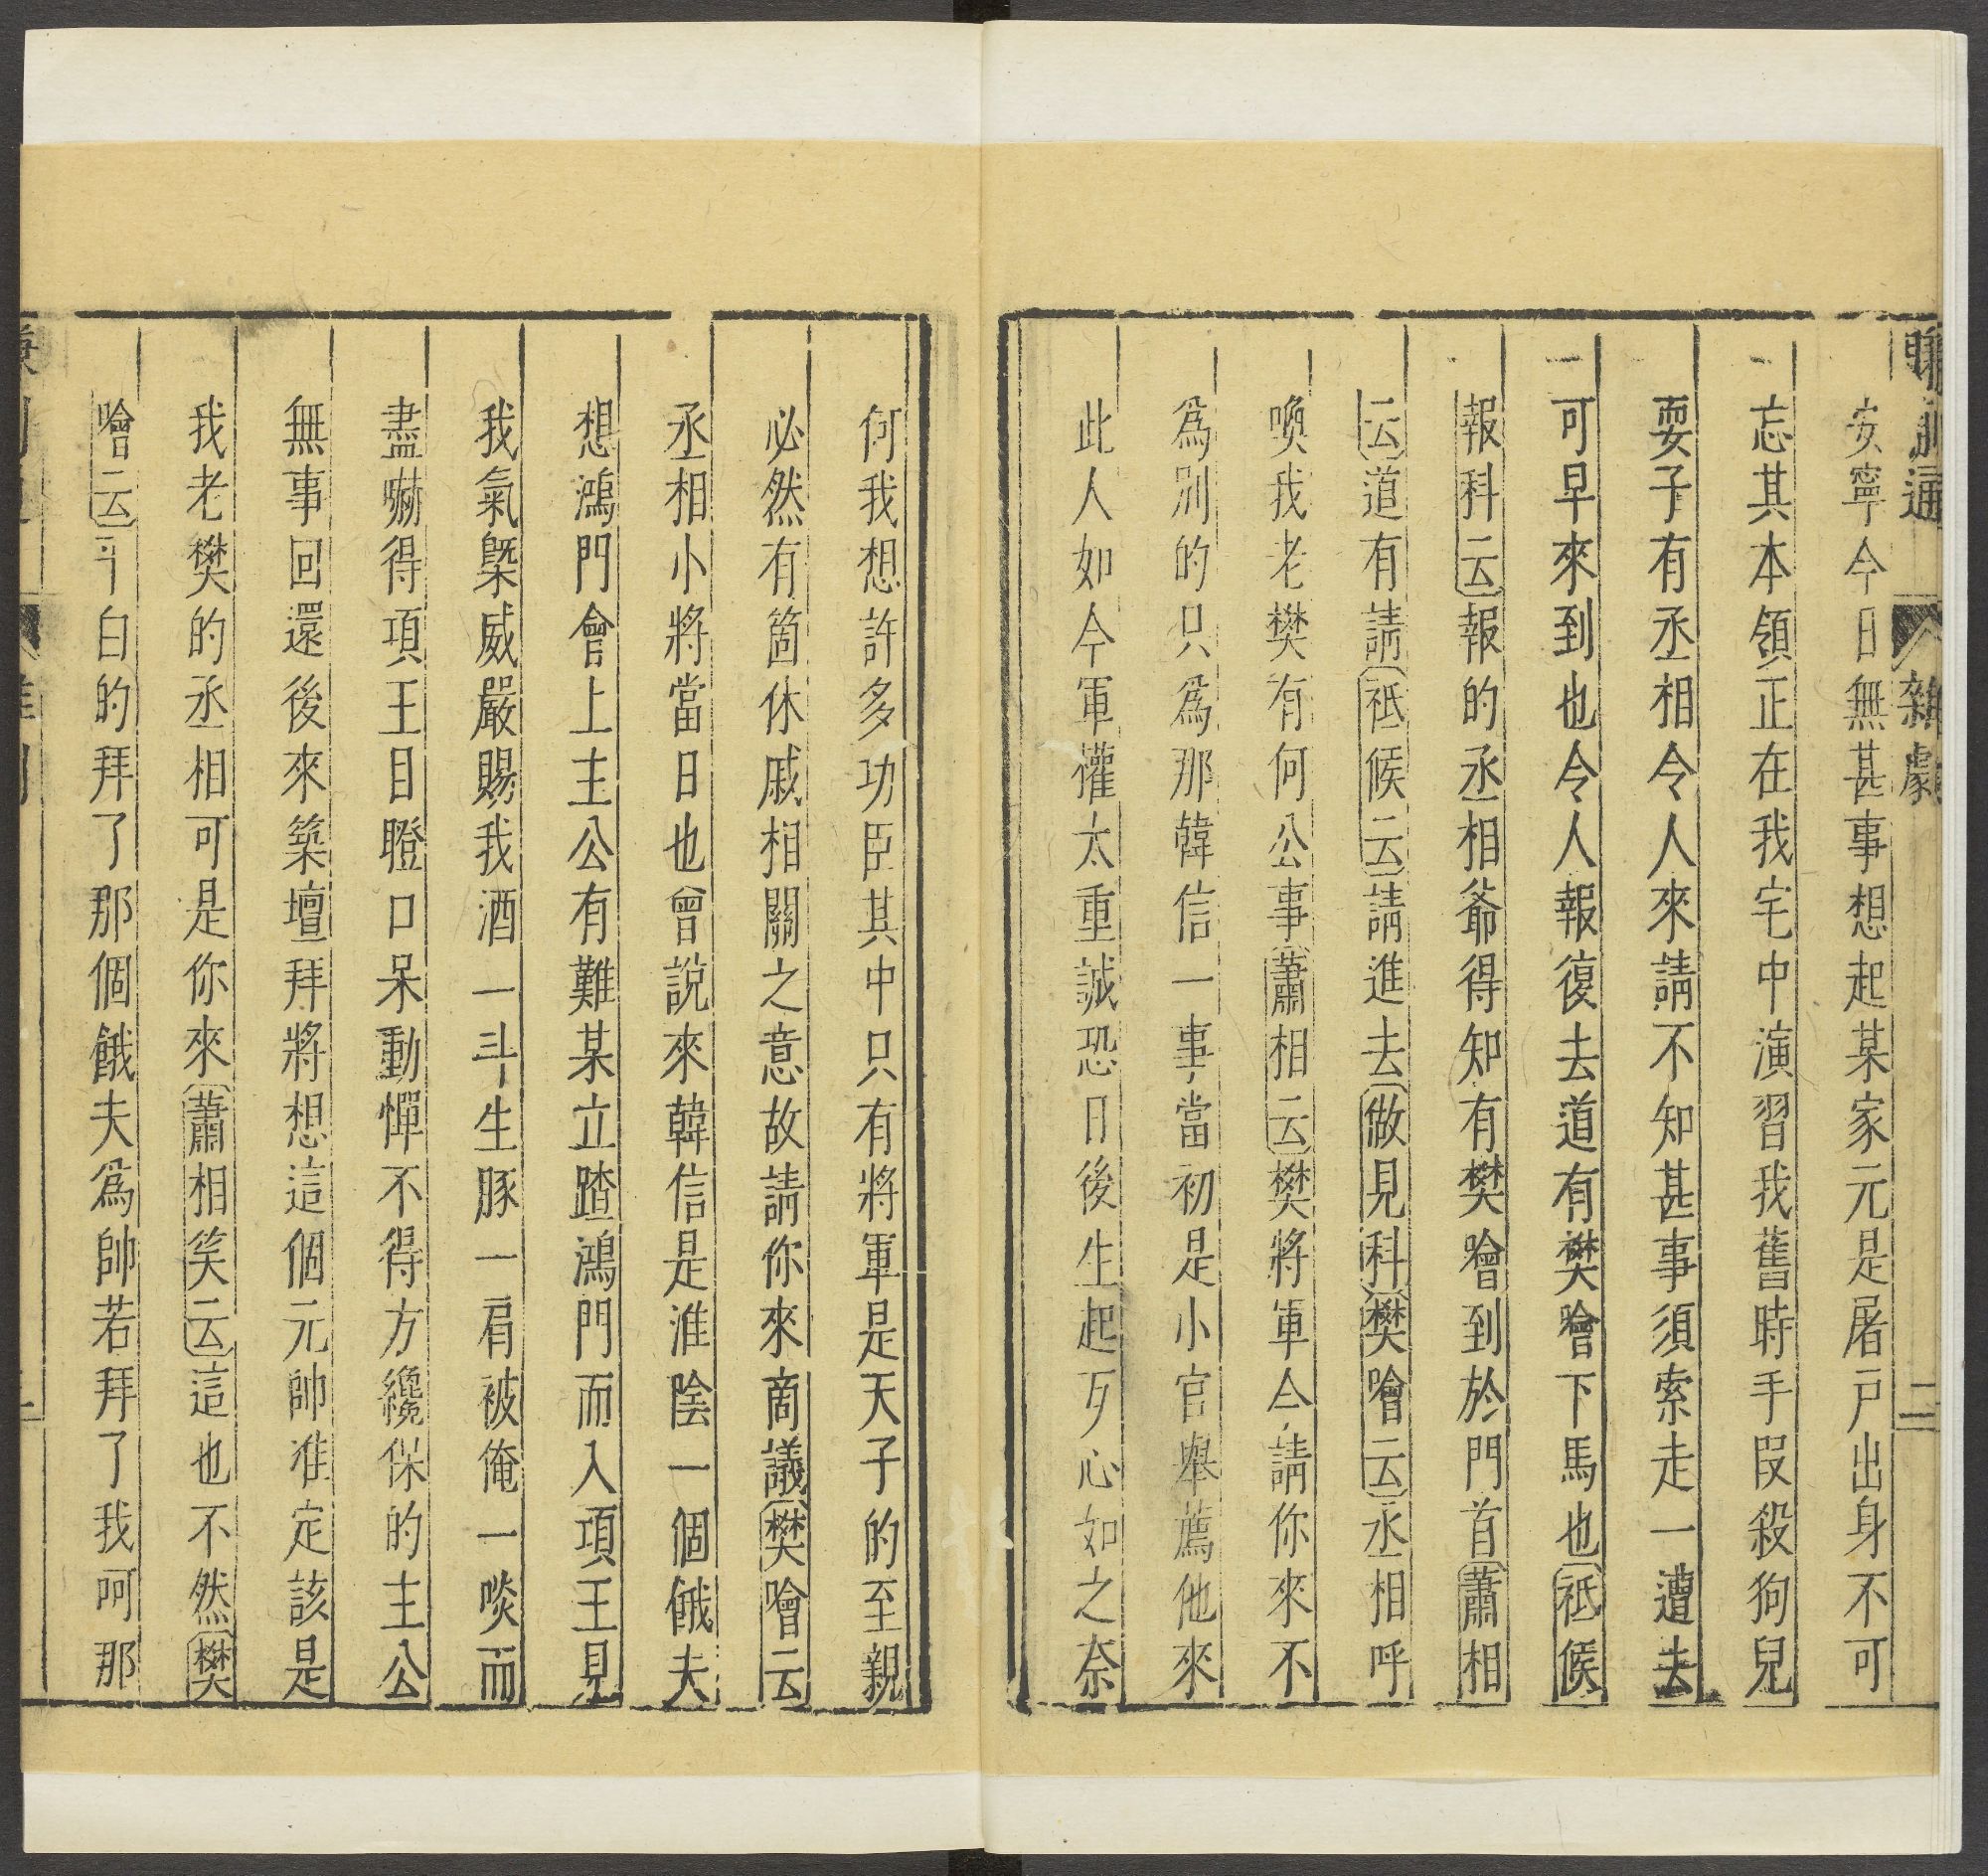 賺蒯通 雜劇 二
安寧今日無甚事想起某家元是屠戸出身不可
忘其本領正在我宅中演習我舊時手段殺狗兒
耍子有丞相令人來請不知甚事須索走一遭去
可早來到也令人報復去道有樊噲下馬也祗候
報科云報的丞相爺得知有樊噲到於門首蕭相
云道有請祗候云請進去做見科樊噲云丞相呼
喚我老樊有何公事蕭相云樊將軍今請你來不
爲別的只爲那韓信一事當初是小官舉薦他來
此人如今軍權太重誠恐日後生起歹心如之奈
何我想許多功臣其中只有將軍是天子的至親
必然有箇休戚相關之意故請你來商議樊噲云
丞相小將當日也曾說來韓信是淮陰一個餓夫
想鴻門會上主公有難某立踏鴻門而入項王見
我氣槩威嚴賜我酒一斗生豚一肩被俺一啖而
盡嚇得項王目瞪口呆動憚不得方纔保的主公
無事回還後來築壇拜將想這個元帥准定該是
我老樊的丞相可是你來蕭相笑云這也不然樊
噲云平白的拜了那個餓夫爲帥若拜了我呵那